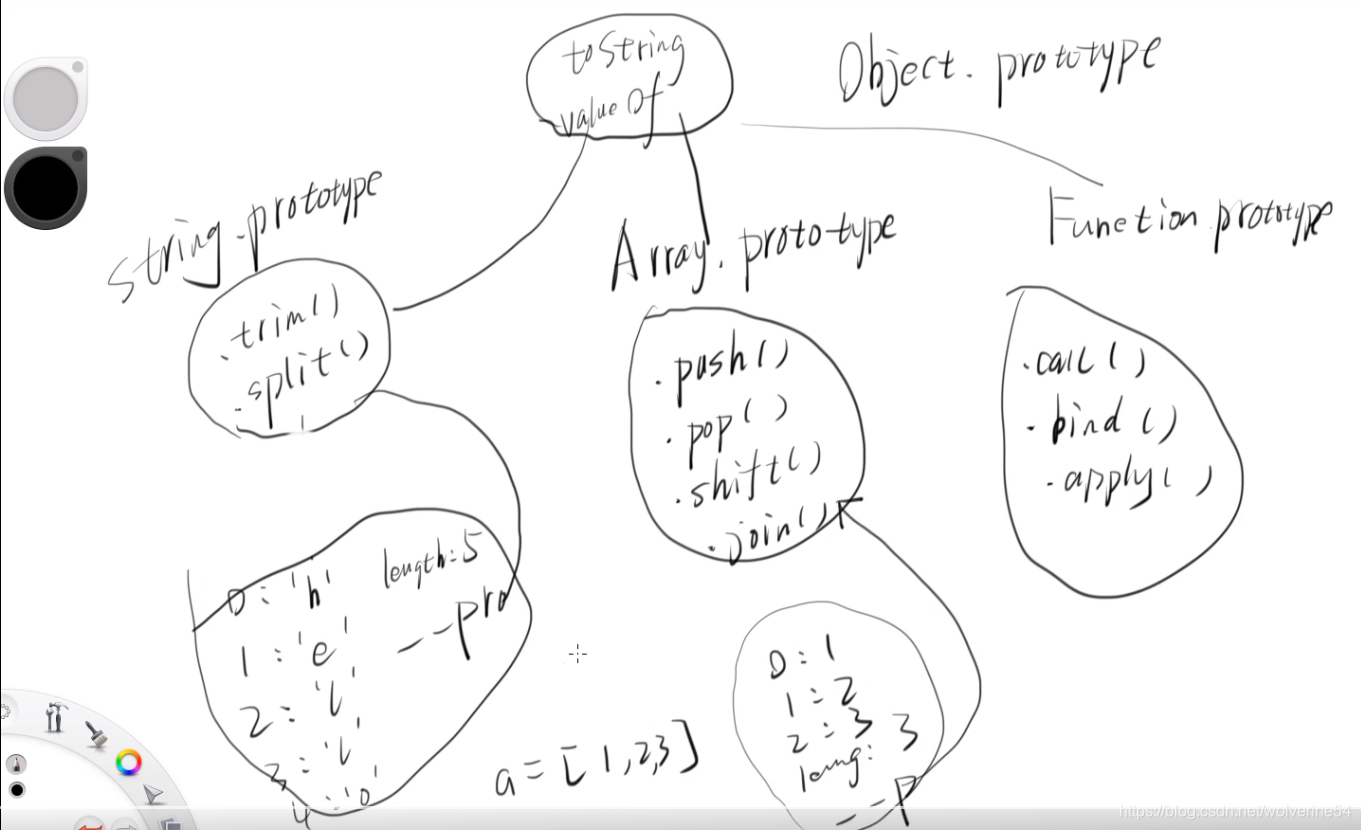 toString
valueOf
Object.prototype
string.prototype
.trim()
.split()
Array.prototype
.push()
.pop()
.shift()
.join()
Function.prototype
.call()
.bind()
.apply()
0:'h'
length:5
1:'e'
--pro
2:'l'
3:'l'
4:'o'
a=[1,2,3]
0:1
1:2
2:3
leng:3
-P
https://blog.csdn.net/wolverine54